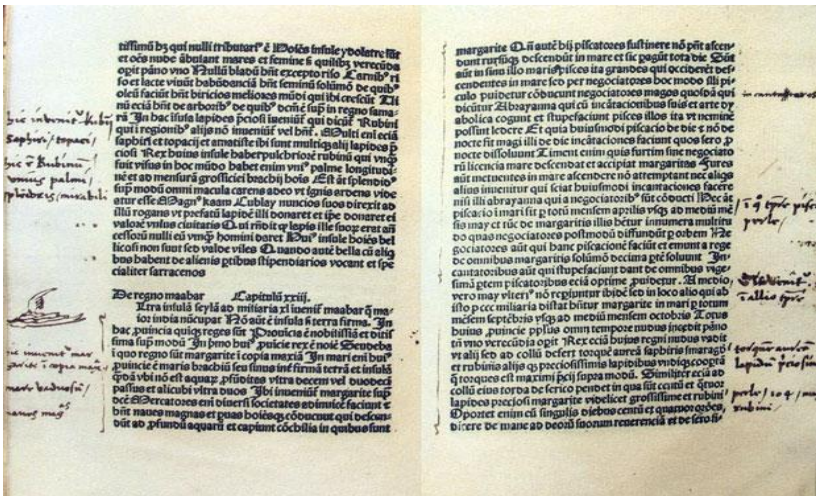 tissimũ bꝫ qui nulli tributariꝰ ē Hoīes insule ydolatre sūt
et oēs nude ābulant mares et femine sꝫ quilibꝫ verecūda
opit pāno vno Nullū bladū hñt excepto riso Carnibꝰ ri
so et lacte viuūt habūdanciā hñt seminū solūmō de quibꝰ
oleū faciūt hñt biricios meliores mūdi qui ibi crescūt
niū eciā hñt de arboribꝰ de quibꝰ dcm̄ ē supͣ in regno sama
rā In hac īsula lapides p̄ciosi īueniūt qui dicūt Rubini
qui ī regionibꝰ alijs nō inueniūt vel hñt Multi eni eciā
saphiri et topacij et amatiste ibi sunt multiqꝫ alij lapides p̄
ciosi Rex huius insule habet pulchriorē rubinū qui vnqꝫ
fuit visus in hoc mūdo habet enim vniꝰ palme longitudi
nē et ad mensurā grossiciei brachij hoīs Est āt splendidꝰ
supͣ modū omni macula carens adeo vt ignis ardens vide
atur esse Magnꝰ kaam Cublay nuncios suos direxit ad
illū rogans vt prefatū lapidē illi donaret et ipē donaret ei
valorē vnius ciuitatis Qui rn̄dit qꝫ lapis ille suoꝝ erat añ
cessorū nulli eū vnqꝫ homini daret Huiꝰ insule hoīes bel
licosi non sunt sed valde viles Quando autē bella cū aliqͥ
bus habent de alienis ꝑtibus stipendiarios vocant et spe
cialiter sarracenos
De regno maabar Capitulū xxiij.
Vltra insulā seylā ad miliaria xl īuenit maabar q̄ ma
ior india nūcupat Nō aūt ē insula sꝫ terra firma. In
hac ꝓuincia quīqꝫ reges sūt Prouincia ē nobilissīa et ditis
sima supͣ modū In p̄mo huiꝰ ꝓuīcie rex ē noīe Sendeba
ī quo regno sūt margarite ī copia maxīa In mari eni huiꝰ
ꝓuincie ē maris brachiū seu sinus int̄ firmā terrā et insulā
q̄ndā vbi nō est aquaꝝ ꝓfūditas vltra decem vel duodecī
passus et alicubi vltra duos Ibi inueniūt margarite supͣ
dcē Mercatores eni diuersi societates adinuicē faciunt et
hñt naues magnas et ꝑuas hoīesqꝫ cōducunt qui descen
dūt ad ꝓfundū aquarū et capiunt cōchilia in quibus sunt
hic inuenit̄ Rubinj
Saphiri / topacij
hic ē Rubinū
vnius palmi
margarite ī copia
mare vadosum /
naues magͣˢ
margarite Qn̄ autē hij piscatores sustinere nō pn̄t ascen
dunt rursūqꝫ descendūt in mare et sic ꝑagūt tota die Sūt
aūt in sinu illo maris pisces ita grandes qui occiderēt des
cendentes in mare sed per negociatores hoc modo illi pi
culo ꝓuidetur cōducunt negociatores magos quosdā qui
dicūtur Abrayanna qui cū incātacionibus suis et arte dy
abolica cogunt et stupefaciunt pisces illos ita vt neminē
possint ledere Et quia huiusmodi piscacio de die ⁊ nō de
nocte fit magi illi de die incātaciones faciunt quos sero ꝓ
nocte dissoluunt Timent enim quis furtim sine negiato
rū licencia mare descendat et accipiat margaritas Fures
aūt metuentes in mare ascendere nō attemptant nec aliqͥs
alius inuenitur qui sciat huiusmodi incantaciones facere
nisi illi abrayanna qui a negociatoribꝰ sūt cōducti Hec āt
piscacio ī mari fit ꝑ totū mensem aprilis vsqꝫ ad mediū mē
sis may et tūc de margaritis illis hētur innumera multitu
do quas negociatores postmodū diffundūt ꝑ orbem Ne
gociatores aūt qui hanc piscacionē faciūt et emunt a rege
de omnibus margaritis solūmō decima ꝑtē soluunt In
cantatoribus aūt qui stupefaciunt dant de omnibus vige
simā ꝑtem piscatoribus eciā optime ꝓuidetur. A medio
vero may vlteriꝰ nō reꝑiuntur ibidē sed in loco alio qui ab
isto ꝑ ccc miliaria distat hñtur margarite in mari ꝑ totum
mēsem septēbris vsqꝫ ad medium mensem octobris Totus
huius ꝓuincie ppl̄us omni tempore nudus incedit pāno
tn̄ vno verecūdia opit Rex eciā huius regni nudus vadit
vt alij sed ad collū defert torquē aureā saphiris smaragdꝭ
et rubinis alijsqꝫ preciosissimis lapidibus vndiqꝫ coop̄tā
q̄ torques est maximi precij supra modū. Similiter eciā ad
collū eius corda de serico pendet in qua sūt centū et qͣtuor
lapides preciosi margarite videlicet grossissime et rubini
Oportet enim eū singulis diebus centū et quatuor orōes
dicere de mane ad deorū suorum reuerenciā et de sero si-
perle /
torquē aureū
lapidum preciosum
perle / 104 /
rubini /